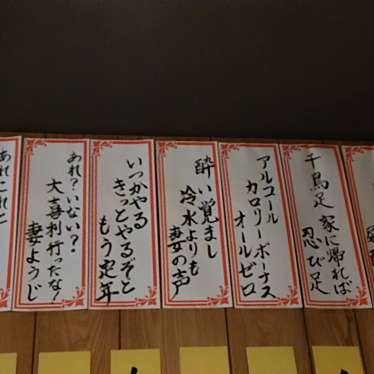 千鳥足
家に帰れば
忍び足
アルコール
カロリーボーナス
オールゼロ
酔い覚まし
冷水よりも
妻の声
いつかやる
きっとやるぞと
もう定年
あれ?いない?
大喜利行ったな!
妻ようじ
あれこれと